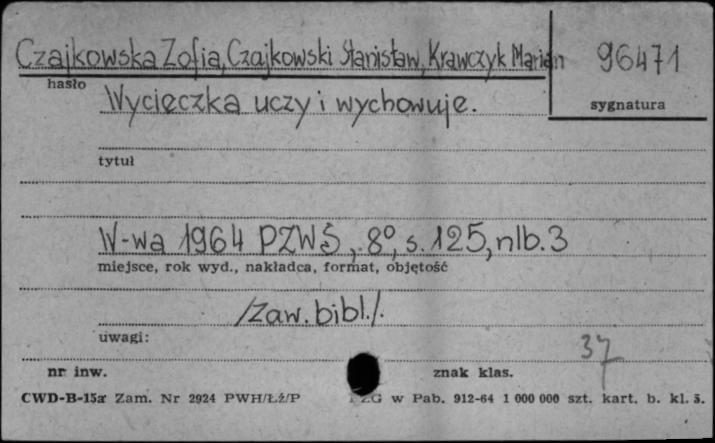 Czajkowska Zofia, Czajkowski Stanisław, Krawczyk Marian 96471
hasło
sygnatura
Wycieczka uczy i wychowuje.
tytuł
W-wa 1964 PZWS, 8°, s. 125, nlb. 3
miejsce, rok wyd., nakładca, format, objętość
/Zaw. bibl./.
uwagi:
37
nr inw. znak klas.
CWD-B-15a Zam. Nr 2924 PWH/Łż/P w Pab. 912-64 1 000 000 szt. kart. b. kl. 5.